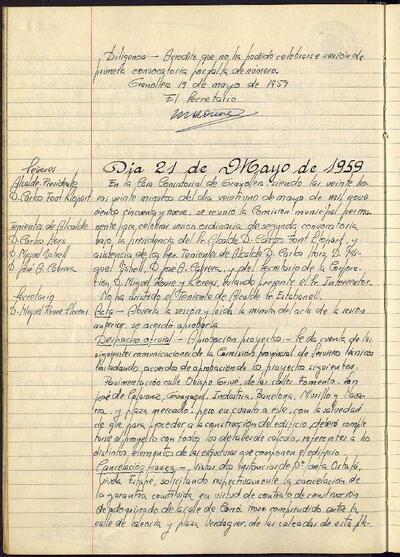 Diligencia - Acredito que no ha podido celebrarse sesión de
primera convocatoria por falta de número.
Granollers 19 de mayo de 1959
El Secretario
Señores
Alcalde-Presidente
D. Carlos Font Llopart
Tenientes de Alcalde
D. Carlos
D. Miguel
D. José A. Cabrera
Secretario
D. Miguel Roure
Día 21 de Mayo de 1959
En la Casa Consistorial de Granollers, siendo las veinte ho-
ras veinte minutos del día veintiuno de mayo de mil nove-
cientos cincuenta y nueve, se reunió la Comisión municipal perma-
nente para celebrar sesión ordinaria de segunda convocatoria
bajo la presidencia del Sr. Alcalde D. Carlos Font Llopart, y
asistencia de los Sres. Tenientes de Alcalde D. Carlos D. Mi-
guel D. José A. Cabrera, y del Secretario de la Corpora-
ción, D. Miguel Roure y estando presente el Sr. Interventor.
No ha asistido el Teniente de Alcalde Sr. Estabanell.
Acta - Abierta la sesión y leída la minuta del acta de la sesión
anterior, se acordó aprobarla.
Despacho oficial - Aprobación proyectos - Se da cuenta de las
siguientes comunicaciones de la Comisión provincial de Servicios técnicos
trasladando acuerdo de aprobación de los proyectos siguientes:
Pavimentación calle Obispo de las calles Fomento, San
José de Calasanz, Guayaquil, Industria, Barcelona, Murillo y
y plaza mercado, pero en cuanto a este, con la salvedad
de que para proceder a la construcción del edificio, deberá comple-
tarse el proyecto con todos los detalles de cálculo, referentes a los
distintos elementos de las estructuras que componen el edificio.
Cancelación fianza - Vistas dos instancias de Dª
Viuda solicitando respectivamente la cancelación de
la garantía constituida en virtud de contrato de construcción
de adoquinado de la calle de trozo comprendido entre la
calle de Valencia y plaza Verdaguer, de las calzadas de esta